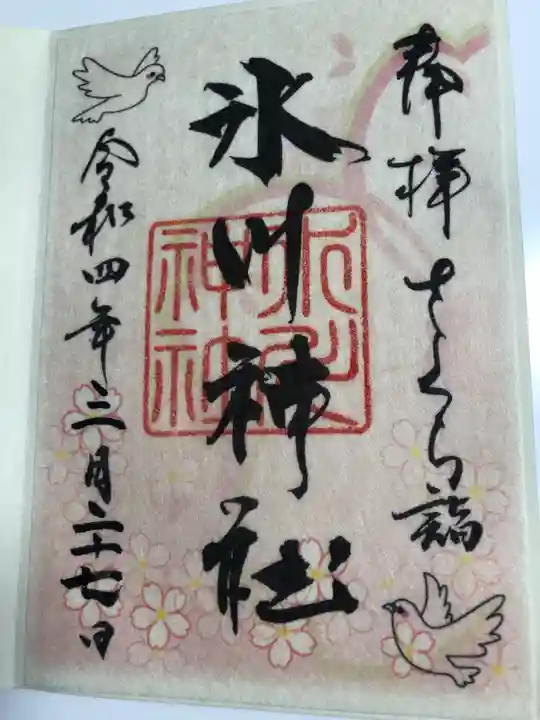 奉拝 さくら詣
氷川神社
令和四年三月二十七日